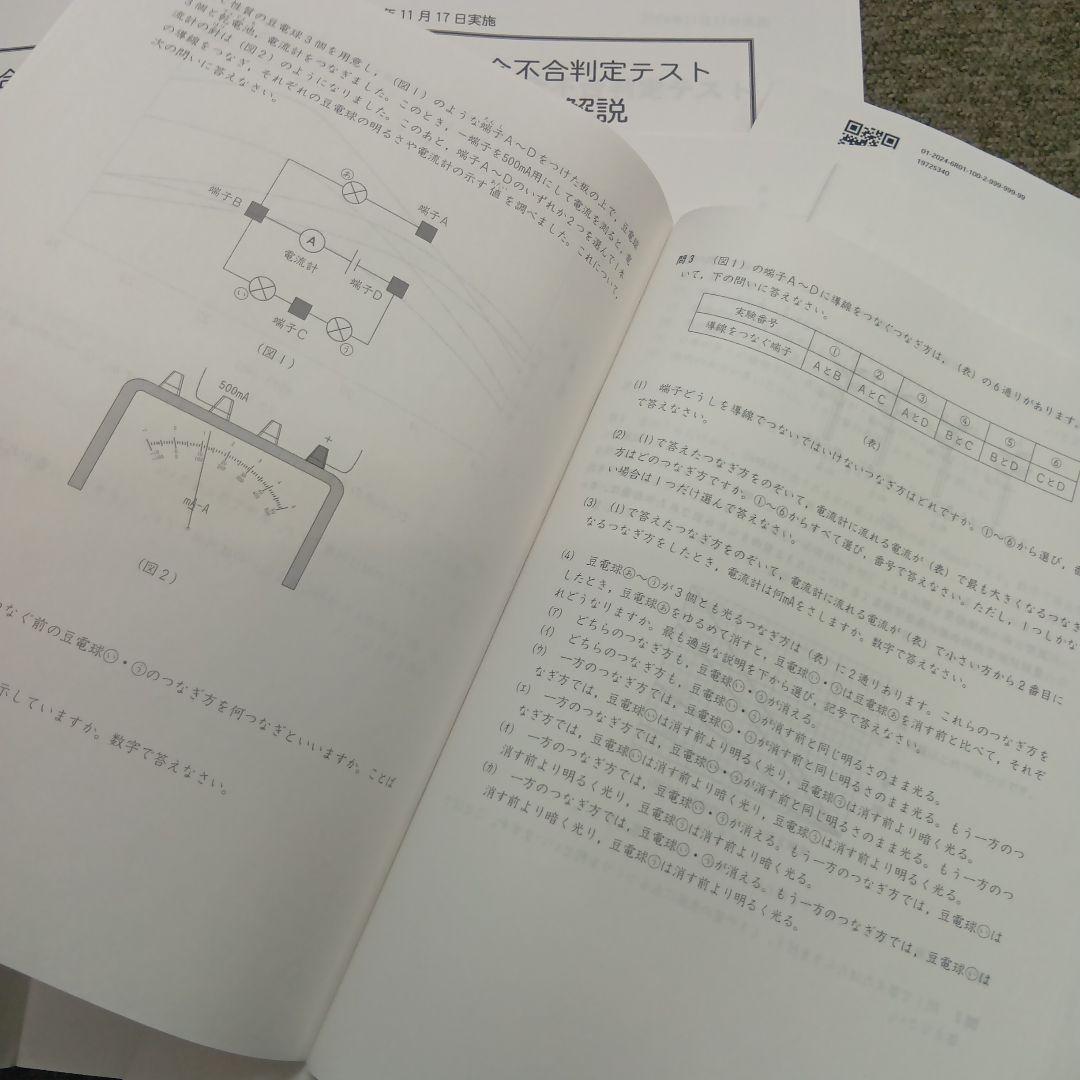 年11月17日実施
合不合判定テスト
解説
01-2024-6R01-100-2-999-999-99
19725340
性質の豆電球3個を用意し，（図1）のような端子A～Dをつけた板の上で，豆電球
3個と乾電池，電流計をつなぎました。このとき，－端子を500mA用にして電流を測ると，電
流計の針は（図2）のようになりました。このあと，端子A～Dのいずれか2つを選んで1本
の導線をつなぎ，それぞれの豆電球の明るさや電流計の示す値を調べました。これについて，
次の問いに答えなさい。
あ
端子A
端子B
A
電流計
端子D
い
端子C
う
（図1）
500mA
＋
mA-A
（図2）
なぐ前の豆電球い・うのつなぎ方を何つなぎといいますか。ことば
示していますか。数字で答えなさい。
問3 （図1）の端子A～Dに導線をつなぐつなぎ方は，（表）の6通りがあります。
いて，下の問いに答えなさい。
実験番号 ① ② ③ ④ ⑤ ⑥
導線をつなぐ端子 AとB AとC AとD BとC BとD CとD
（表）
(1) 端子どうしを導線でつないではいけないつなぎ方はどれですか。①～⑥から選び，番
で答えなさい。
(2) (1)で答えたつなぎ方をのぞいて，電流計に流れる電流が（表）で最も大きくなるつなぎ
方はどのつなぎ方ですか。①～⑥からすべて選び，番号で答えなさい。ただし，1つしかな
い場合は1つだけ選んで答えなさい。
(3) (1)で答えたつなぎ方をのぞいて，電流計に流れる電流が（表）で小さい方から2番目に
なるつなぎ方をしたとき，電流計は何mAをさしますか。数字で答えなさい。
(4) 豆電球あ～うが3個とも光るつなぎ方は（表）に2通りあります。これらのつなぎ方を
したとき，豆電球あをゆるめて消すと，豆電球い・うは豆電球あを消す前と比べて，それぞ
れどうなりますか。最も適当な説明を下から選び，記号で答えなさい。
(ア) どちらのつなぎ方も，豆電球い・うが消える。
(イ) どちらのつなぎ方も，豆電球い・うが消す前と同じ明るさのまま光る。
(ウ) 一方のつなぎ方では，豆電球い・うが消す前と同じ明るさのまま光る。もう一方のつ
なぎ方では，豆電球いは消す前より明るく光り，豆電球うは消す前より暗く光る。
(エ) 一方のつなぎ方では，豆電球い・うが消す前と同じ明るさのまま光る。もう一方のつ
なぎ方では，豆電球いは消す前より暗く光り，豆電球うは消す前より明るく光る。
(オ) 一方のつなぎ方では，豆電球い・うが消える。もう一方のつなぎ方では，豆電球いは
消す前より明るく光り，豆電球うは消す前より暗く光る。
(カ) 一方のつなぎ方では，豆電球い・うが消える。もう一方のつなぎ方では，豆電球いは
消す前より暗く光り，豆電球うは消す前より明るく光る。